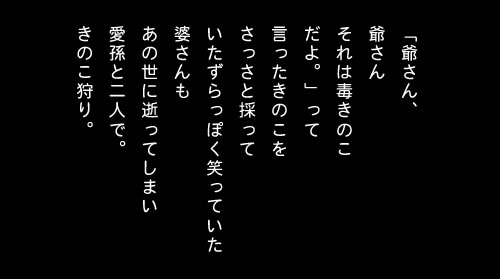 「爺さん、
爺さん
それは毒きのこ
だよ。」って
言ったきのこを
さっさと採って
いたずらっぽく笑っていた
婆さんも
あの世に逝ってしまい
愛孫と二人で。
きのこ狩り。